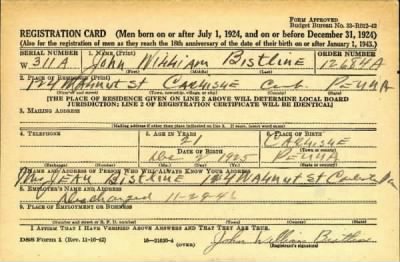 FORM APPROVED
Budget Bureau No. 33-R012-42
REGISTRATION CARD—(Men born on or after July 1, 1924, and on or before December 31, 1924)
(Also for the registration of men as they reach the 18th anniversary of the date of their birth on or after January 1, 1943.)
SERIAL NUMBER 1. NAME (Print) ORDER NUMBER
W 311A John William Bistline 12684A
(First) (Middle) (Last)
2. PLACE OF RESIDENCE (Print)
124 Walnut St Carlisle Cumb. Penna
(Number and street) (Town, township, village, or city) (County) (State)
[THE PLACE OF RESIDENCE GIVEN ON LINE 2 ABOVE WILL DETERMINE LOCAL BOARD
JURISDICTION; LINE 2 OF REGISTRATION CERTIFICATE WILL BE IDENTICAL]
3. MAILING ADDRESS
[Mailing address if other than place indicated on line 2. If same, insert word same]
4. TELEPHONE 5. AGE IN YEARS 6. PLACE OF BIRTH
21 Carlisle
DATE OF BIRTH (Town or county)
Dec 1925 Penna
(Exchange) (Number) (Mo.) (Day) (Yr.) (State or country)
7. NAME AND ADDRESS OF PERSON WHO WILL ALWAYS KNOW YOUR ADDRESS
Mrs Bistline 124 Walnut St
8. EMPLOYER'S NAME AND ADDRESS
Discharged 11-29-46
9. PLACE OF EMPLOYMENT OR BUSINESS
(Number and street or R. F. D. number) (Town) (County) (State)
I AFFIRM THAT I HAVE VERIFIED ABOVE ANSWERS AND THAT THEY ARE TRUE.
DSS Form 1 (Rev. 11-16-42) (OVER) John William Bistline
(Registrant's signature)